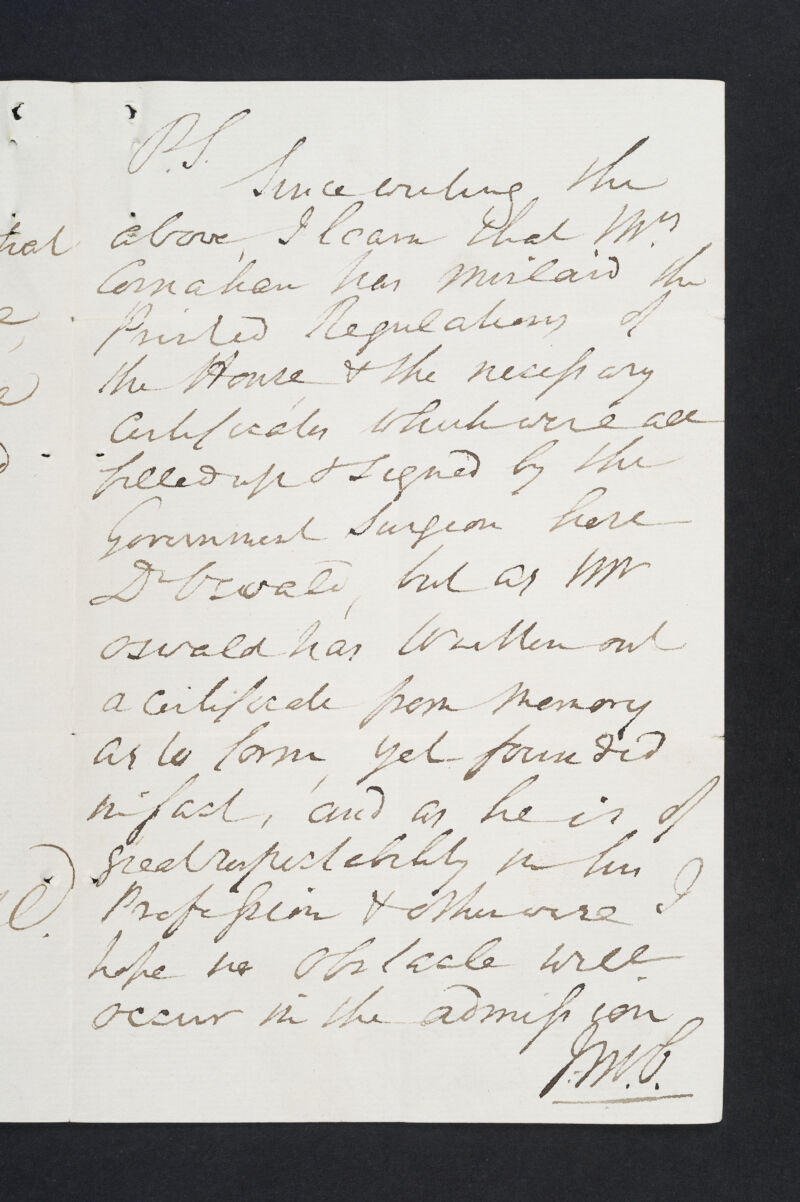 P.S.
Since writing the
above, I learn that Mrs
Carnahan has mislaid the
Printed Regulations of
the House, & the necessary
certificates which were all
filled up & signed by the
Government Surgeon here
Dr Oswald, but as Mr
Oswald has written out
a certificate from memory
as to form, yet founded
in fact, and as he is of
great respectability in his
Profession & otherwise I
hope no obstacle will
occur in the admission